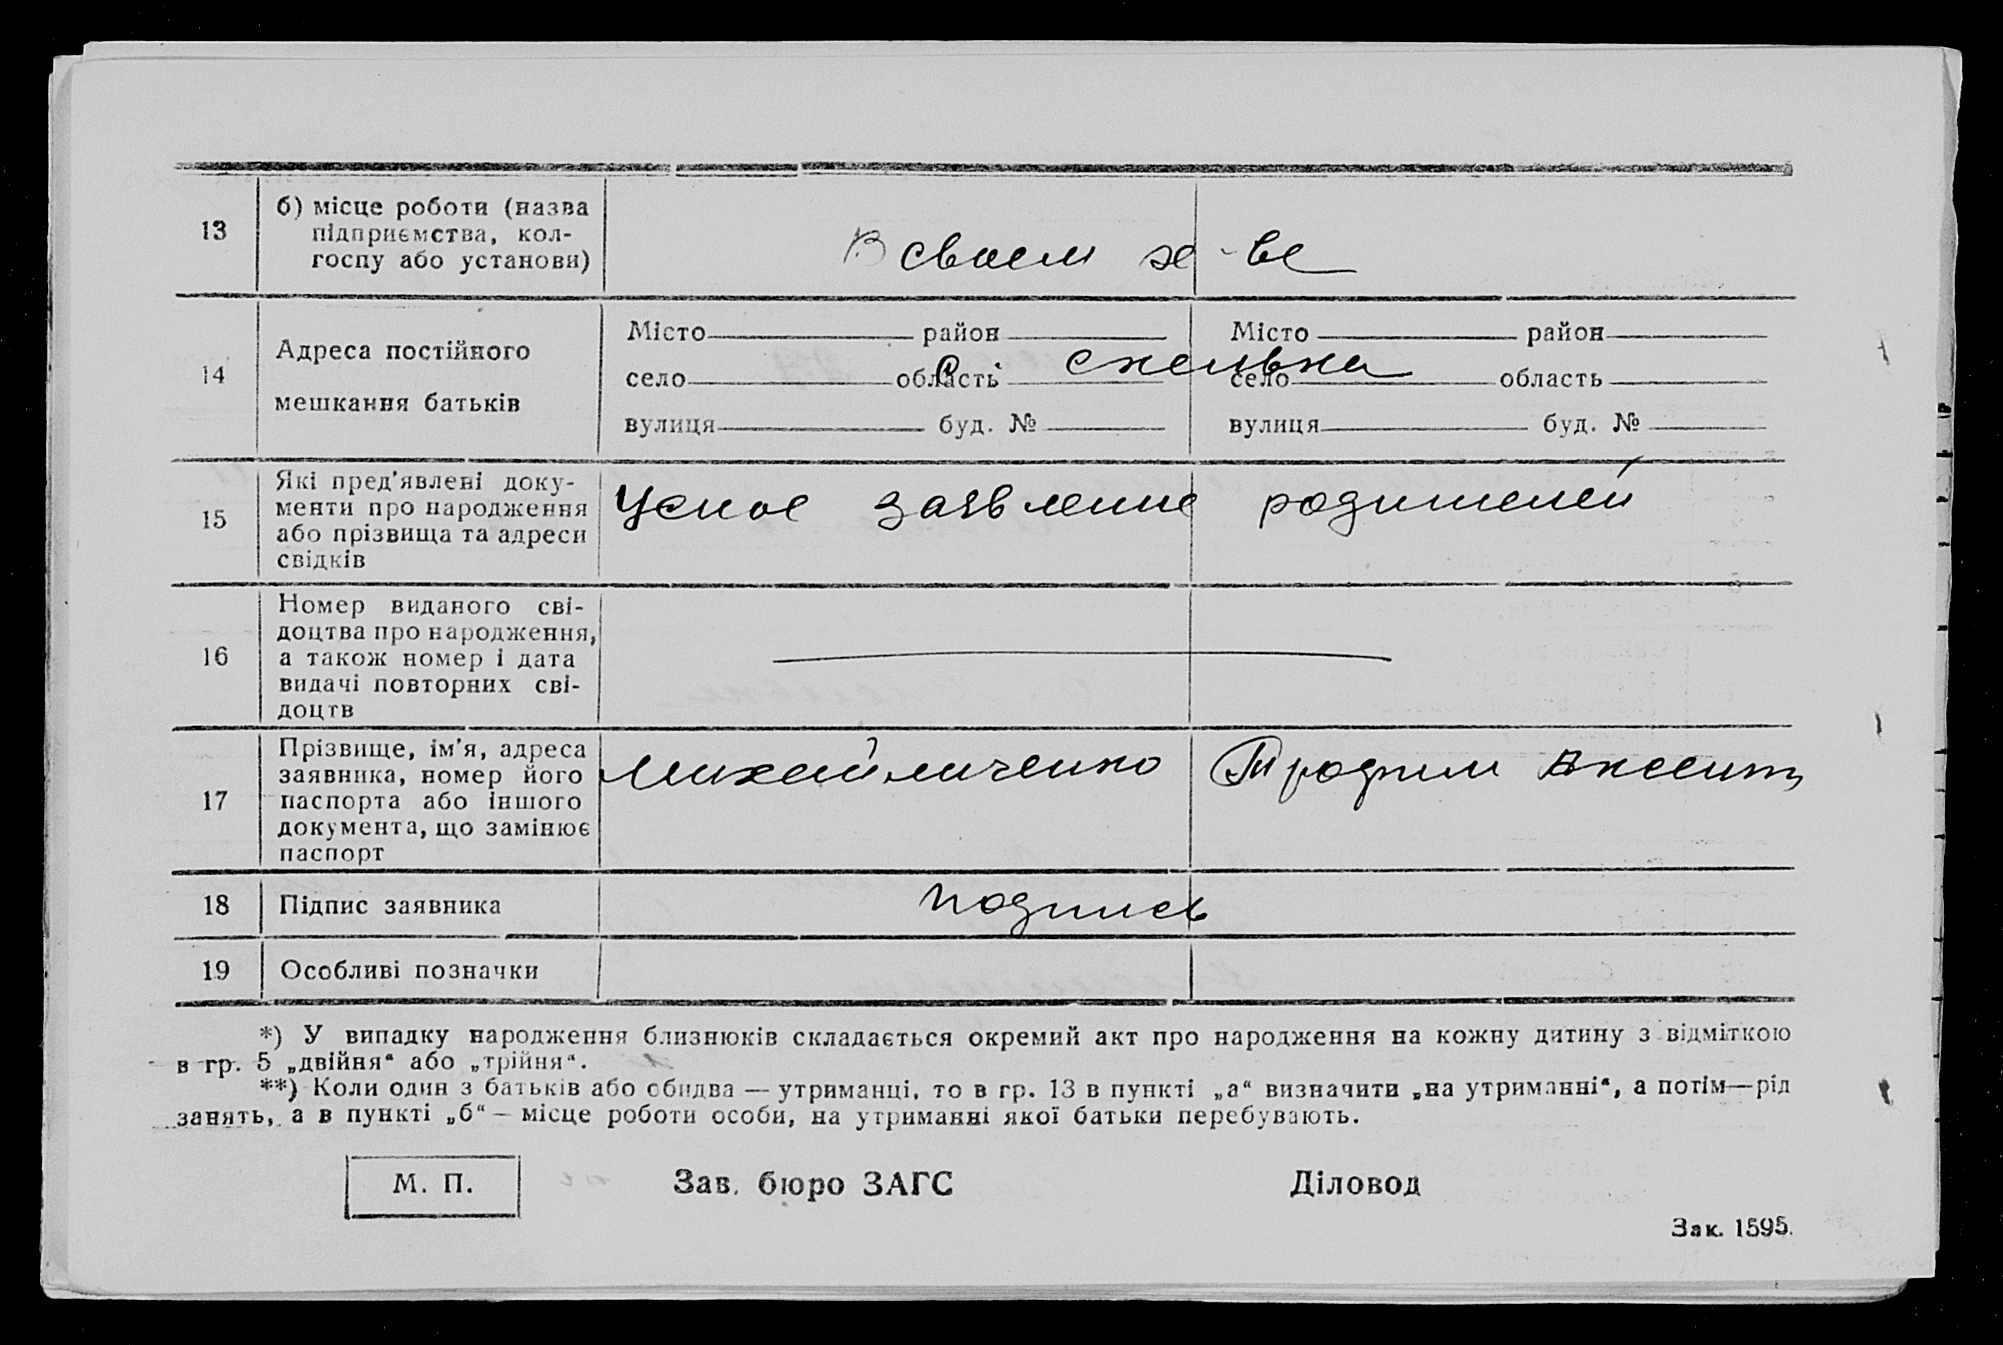 13
б) місце роботи (назва
підприємства, кол-
госпу або установи)
В своем х-ве
14
Адреса постійного
мешкання батьків
Місто район Місто район
с. Скелька
село область село область
вулиця буд. № вулиця буд. №
15
Які пред'явлені доку-
менти про народження
або прізвища та адреси
свідків
Усное заявление родителей
16
Номер виданого сві-
доцтва про народження,
а також номер і дата
видачі повторних сві-
доцтв
17
Прізвище, ім'я, адреса
заявника, номер його
паспорта або іншого
документа, що замінює
паспорт
Михайличенко Трофим
18
Підпис заявника
подпись
19
Особливі позначки
*) У випадку народження близнюків складається окремий акт про народження на кожну дитину з відміткою
в гр. 5 „двійня“ або „трійня“.
**) Коли один з батьків або обидва — утриманці, то в гр. 13 в пункті „а“ визначити „на утриманні“, а потім—рід
занять, а в пункті „б“ — місце роботи особи, на утриманні якої батьки перебувають.
М. П.
Зав. бюро ЗАГС
Діловод
Зак. 1595.